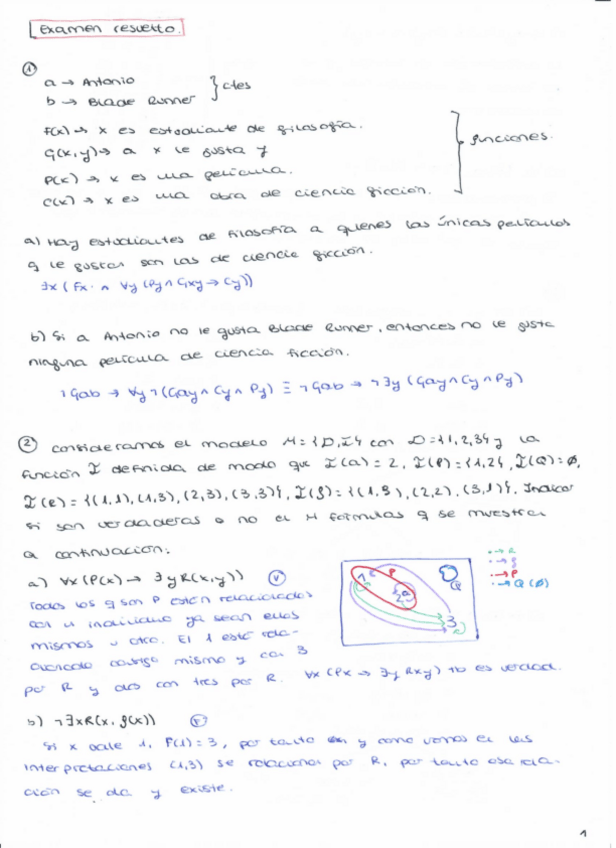 Examen resuelto.
①
a → Antonio
b → Blade Runner } ctes
F(x) → x es estudiante de filosofía.
G(x,y) → a x le gusta y
P(x) → x es una película.
C(x) → x es una obra de ciencia ficción.
funciones.
a) Hay estudiantes de filosofía a quienes las únicas películas
q le gustan son las de ciencia ficción.
∃x (Fx ∧ ∀y (Py ∧ Gxy → Cy))
b) Si a Antonio no le gusta Blade Runner, entonces no le gusta
ninguna película de ciencia ficción.
¬Gab → ∀y ¬(Gay ∧ Cy ∧ Py) ≡ ¬Gab → ¬∃y (Gay ∧ Cy ∧ Py)
② consideramos el modelo M={D,I} con D={1,2,3} y la
función I definida de modo que I(a)=2, I(P)={1,2}, I(Q)=∅,
I(R)={(1,1),(1,3),(2,3),(3,3)}, I(f)={(1,3),(2,2),(3,1)}. Indicar
si son verdaderas o no en M fórmulas q se muestran
a continuación:
a) ∀x(P(x) → ∃yR(x,y)) Ⓥ
Todos los q son P están relacionados
con un individuo ya sean ellos
mismos u otro. El 1 está rela-
cionado consigo mismo y con 3
por R y dos con tres por R. ∀x (Px → ∃y Rxy) es verdad.
1 2 3 Q
→ R
→ f
→ P
→ Q (∅)
b) ¬∃xR(x, f(x))
Si x vale 1, f(1)=3, por tanto y como vemos en las
interpretaciones (1,3) se relacionan por R, por tanto esa rela-
ción se da y existe.
1